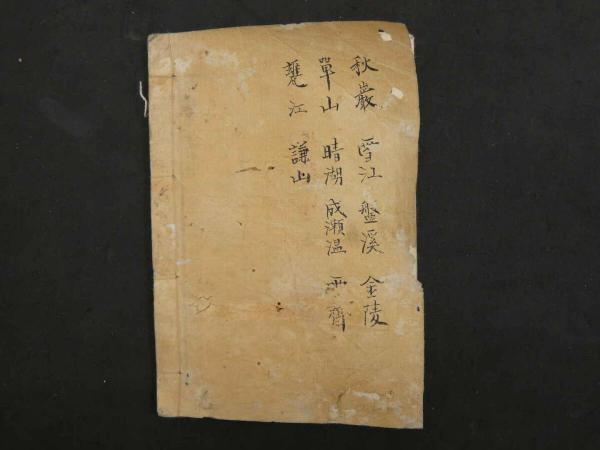 秋巖 雪江 盤溪 金陵
單山 晴湖 成瀬温 雨齋
甕江 謙山